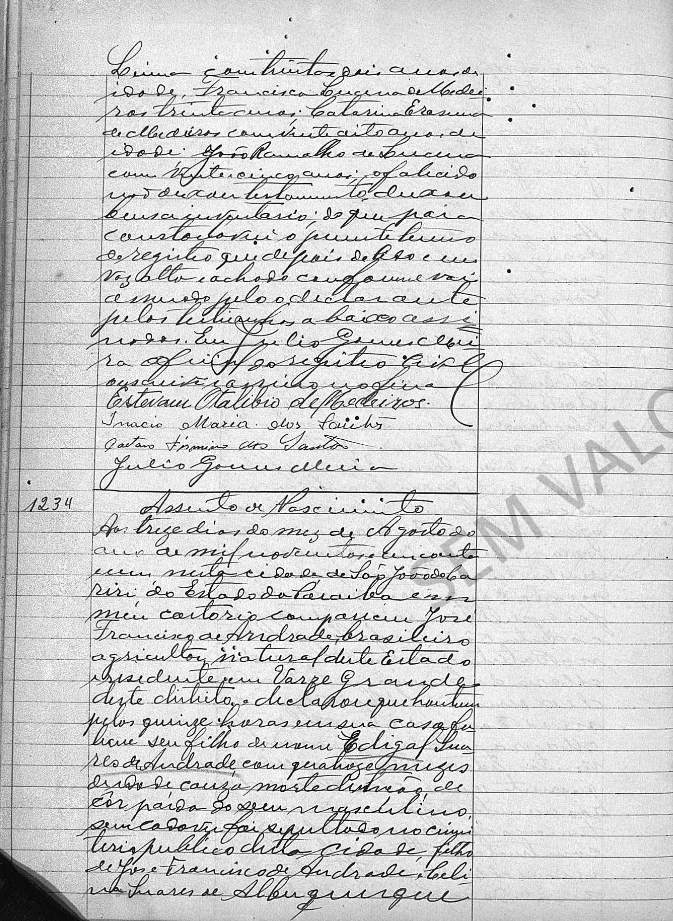 Lima com trinta e dois annos de
idade, Francisco Lucena de Medei
ros trinta annos; Catarina Erasma
de Medeiros com vinte e oito annos de
idade: João Ramalho de Lucena
com vinte e cinco annos; o falecido
não deixou testamento, deixou
bens a inventario; do que para
constar lavrei o presente termo
de registro que depois de lido em
voz alto e achado conforme vai
assinado pelo o declarante
pelos testimunhos abaixo assi
nados. Eu Julio Gomes Mei
ra oficial do registro Civil
o escrevi e assino no fim
Estevam Otalibio de Medeiros.
Inacio Maria dos Santos
Caetano Firmino dos Santos
Julio Gomes Meira
1234
Assento de Nascimento
Aos treze dias do mez de Agosto do
ano de mil novecentos e
um nesta cidade de São João do Ca
riri do Estado da Paraiba e em
meu cartorio compareceu José
Francisco de Andrade, brasileiro
agricultor, natural deste Estado
e residente em Varze Grande
deste distrito, e declarou que hontem
pelos quinze horas em sua casa fa
leceu seu filho de nome Edigal Sua
res de Andrade com quatroze mezes
de idade cauza morte de
côr parda do sexo masculino,
seu cadaver foi sepultado no cimi
terio publico desta cidade, filho
de José Francisco de Andrade e Celi
na Suares de Albuquerque
SEM VALO